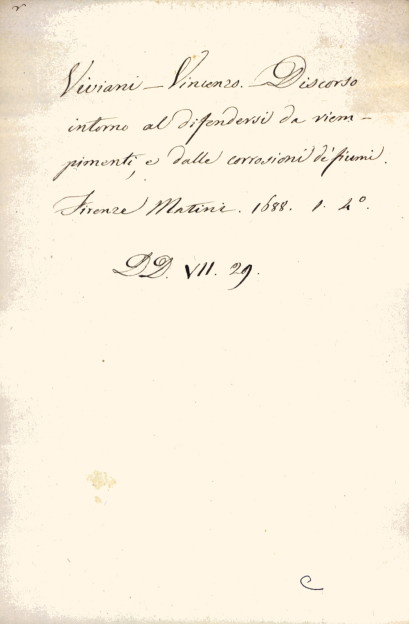 Viviani - Vincenzo. - Discorso
intorno al difendersi da riem-
pimenti, e dalle corrosioni de' fiumi.
Firenze Matini. 1688. 1. 4º.
DD. VII. 29.
C